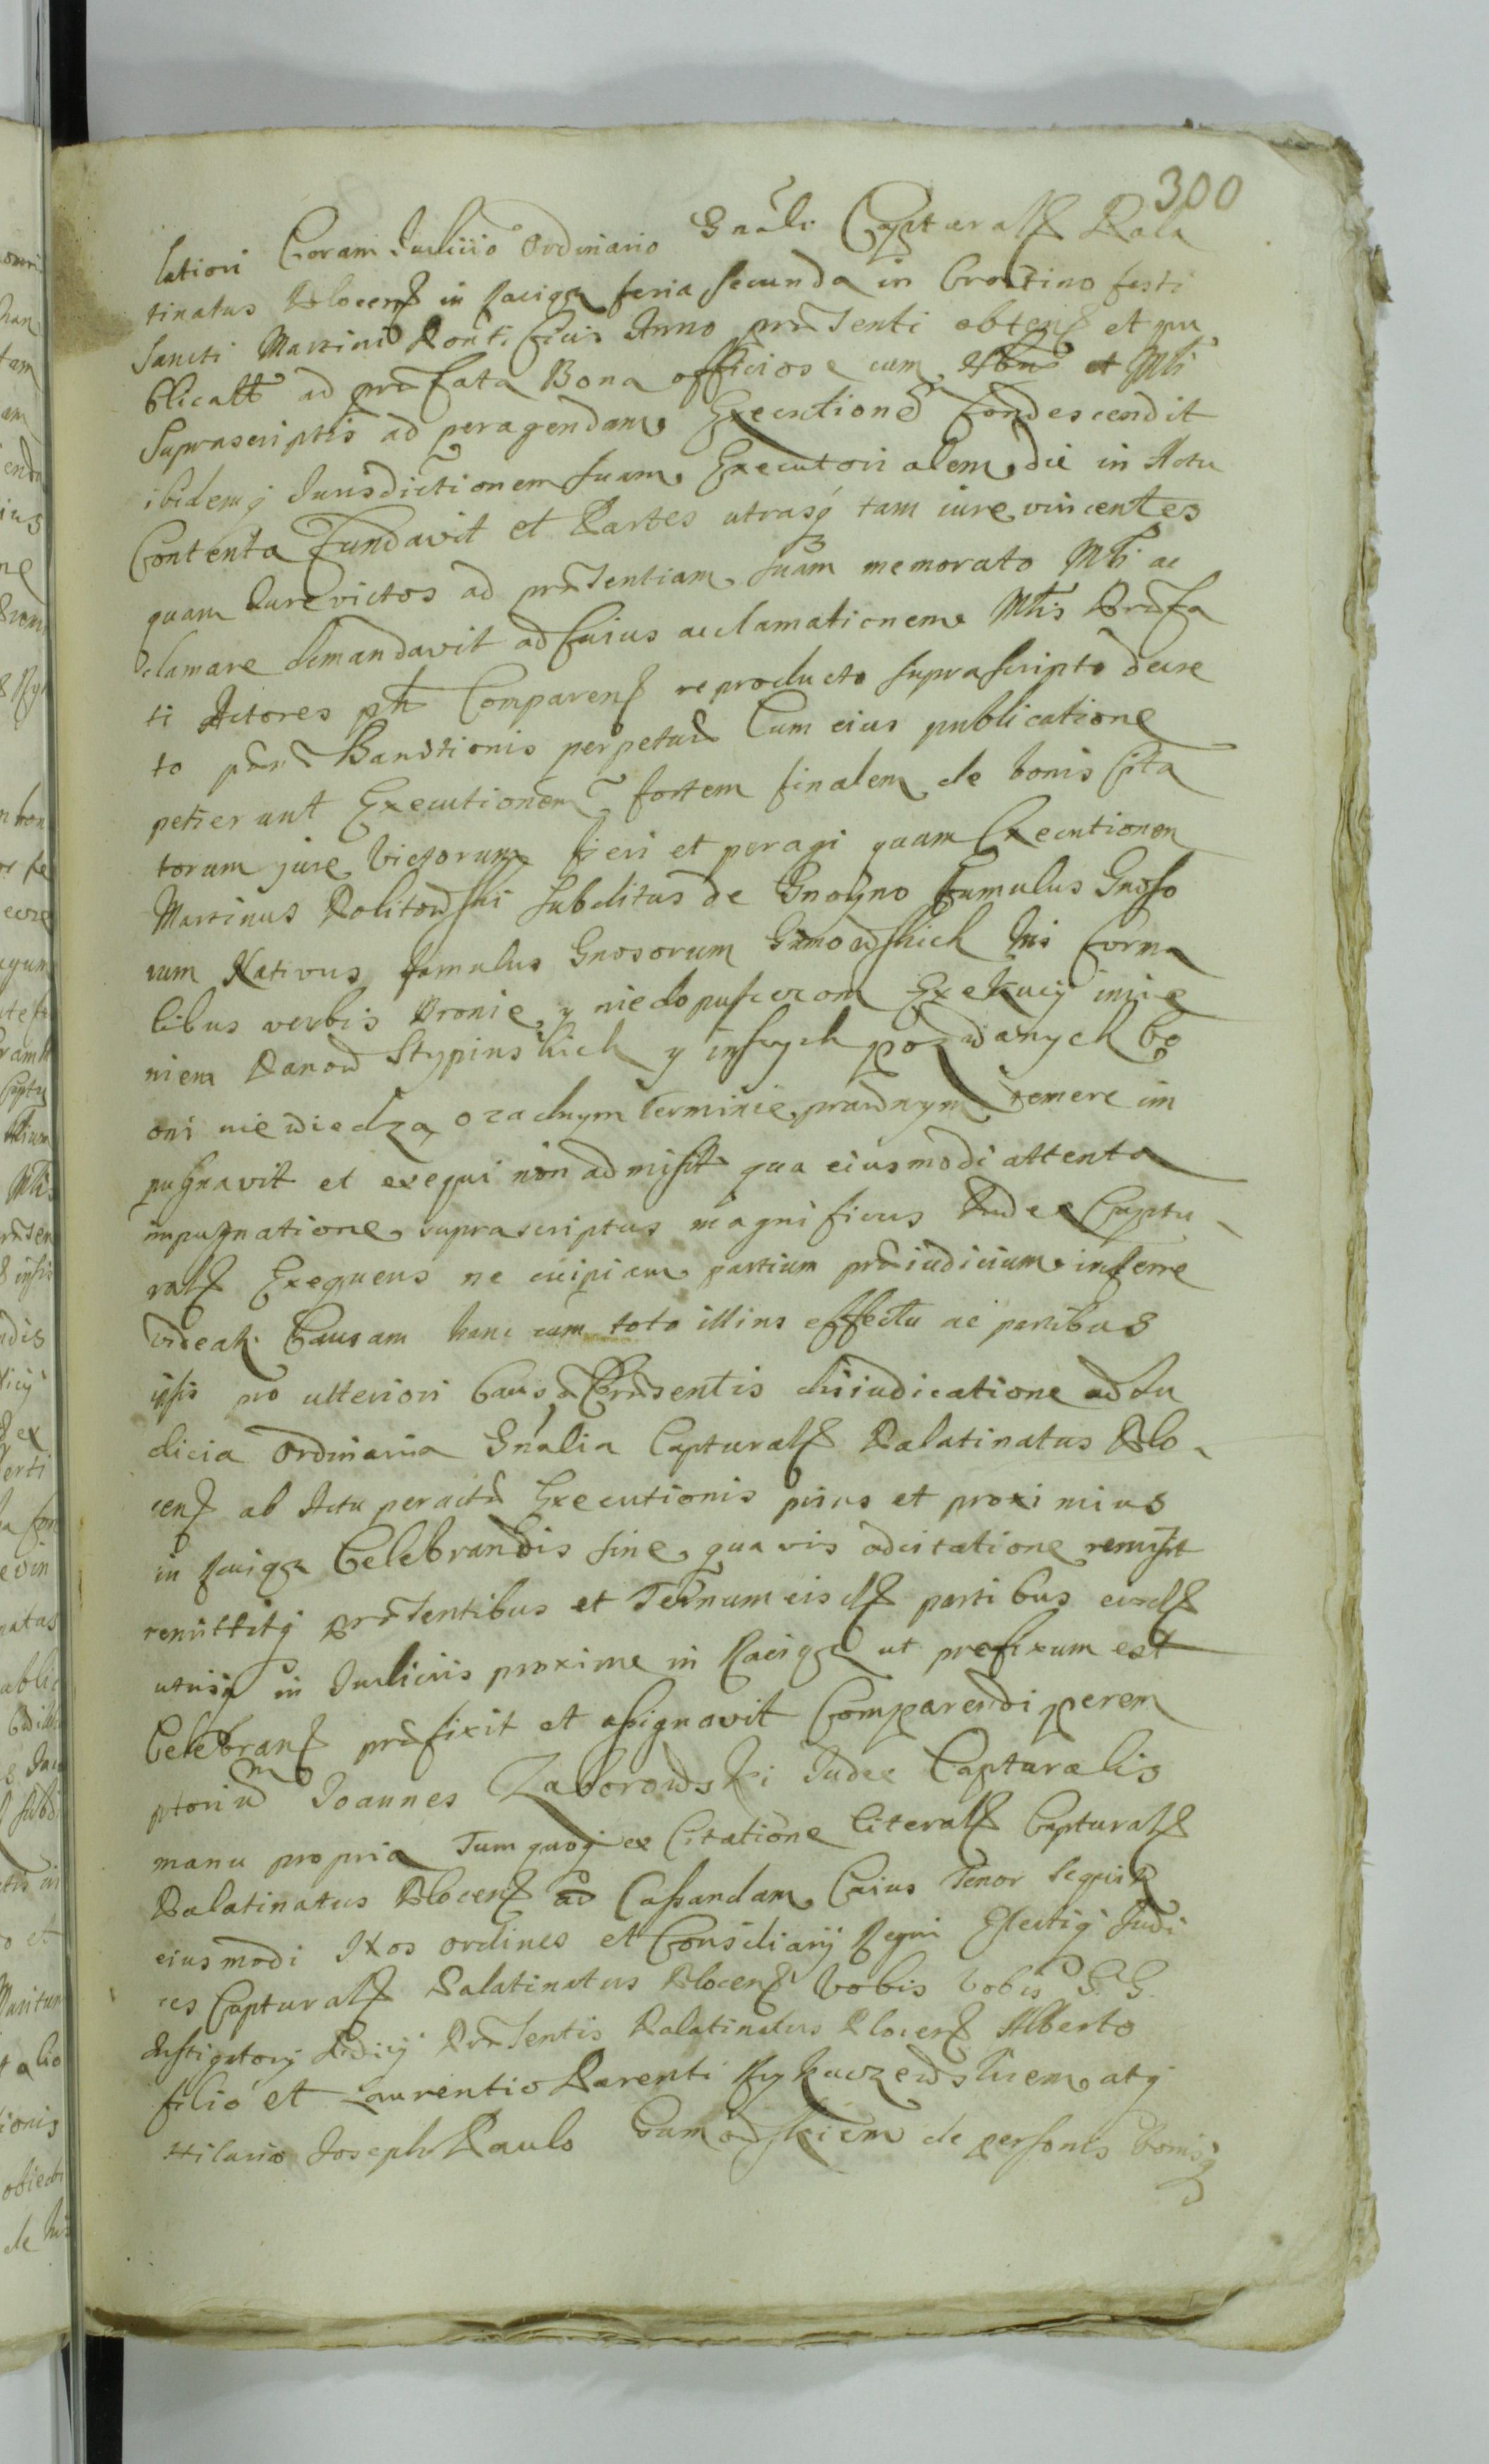 300
latiori Coram Judicio Ordinario Gnali Capturali Pala
tinatus Plocens in Raciąz feria secunda in Crastino festi
Sancti Martini Pontificis Anno prasenti obtens et pu
blicatt ad præfata Bona officiose cum et Mtti
suprascriptis ad peragendam Executione Condescendit
ibidemq Jurisdictionem suam Executorialem die in Actu
Contenta fundavit et Partes utrasq tam iure vincentes
quam Jurevictos ad præsentiam suam memorato Mtti ac
clamare demandavit ad Cuius acclamationem Mttis Præfa
ti Actores ptt Comparens reproducto suprascripto decre
to pænæ Bannitionis perpetuæ Cum eius publicatione
petierunt Executionem fortem finalem de bonis Cita
torum jure Victorum fieri et peragi quam Executionem
Martinus Politowski subditus de Gnoyno famulus Gnoso
rum Nativus famulus Gnosorum Gumowskich his forma
libus verbis Bronie y niedopuszczom Exekucij imie
niem Panow Stypinskich y inszych pozwanych bo
oni niewiedzą ozadnym Terminie prawnym temere im
pugnavit et exequi non admisit qua eiusmodi attenta
impugnatione suprascriptus magnificus Judex Captu
rals Exequens ne cuipiam partium præiudicium inferre
videatr Causam hanc cum toto illius effectu ac partibus
ipsis pro ulteriori Causæ Præsentis diiudicatione ad Ju
dicia Ordinaria Gnalia Capturals Palatinatus Plo
cens ab Actu peractæ Executionis prius et proximius
in Raciąz Celebrandis sine quavis adcitatione remisit
remittitq præsentibus et Ternum eisdz partibus eisdz
utrisq in Judiciis proxime in Raciąz ut prefixum est
Celebrans præfixit et assignavit Comparendi perem
ptorium Joannes Zaborowski Judex Capturalis
manu propria Tum quoq ex Citatione literals Capturals
Palatinatus Plocens ad Cassandam Cuius Tenor sequitr
eiusmodi Nos ordines et Consiliarij Regni Electiq Judi
ces Capturals Palatinatus Plocens Vobis Vobis G. G.
Instigatorj Judicij Præsentis Palatinatus Plocens Alberto
filio et Laurentio Parenti Rykaczewskiem atq
Hilario Joseph Paulo Gumowskiem de personis bonisq